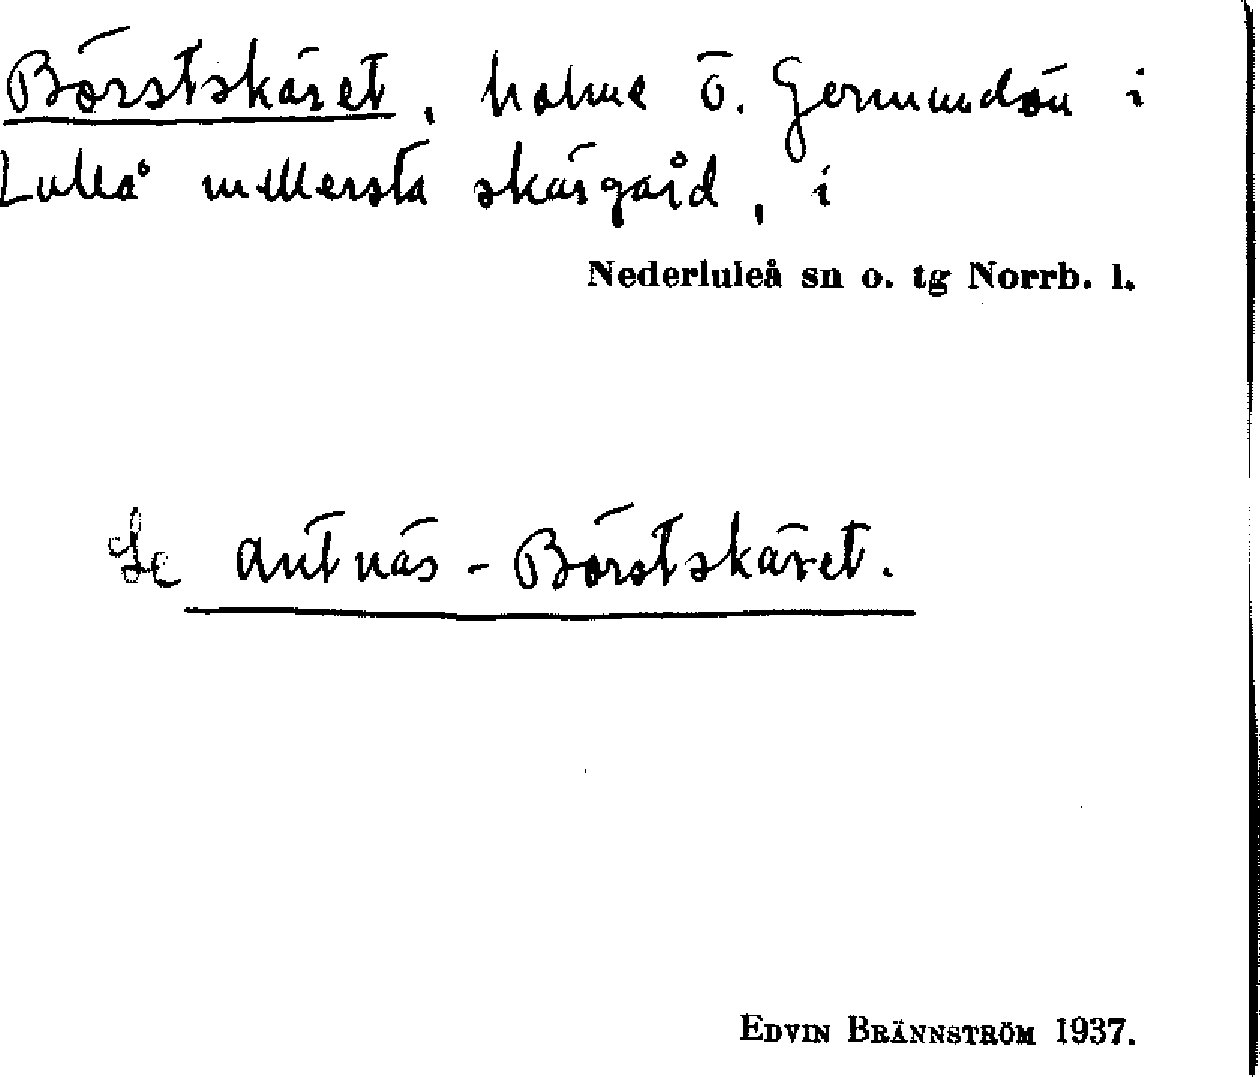 Börstskäret, holme ö. Germundön i
Luleå mellersta skärgård, i
Nederluleå sn o. tg Norrb. l.
Se Antnäs-Börstskäret.
EDVIN BRÄNNSTRÖM 1937.